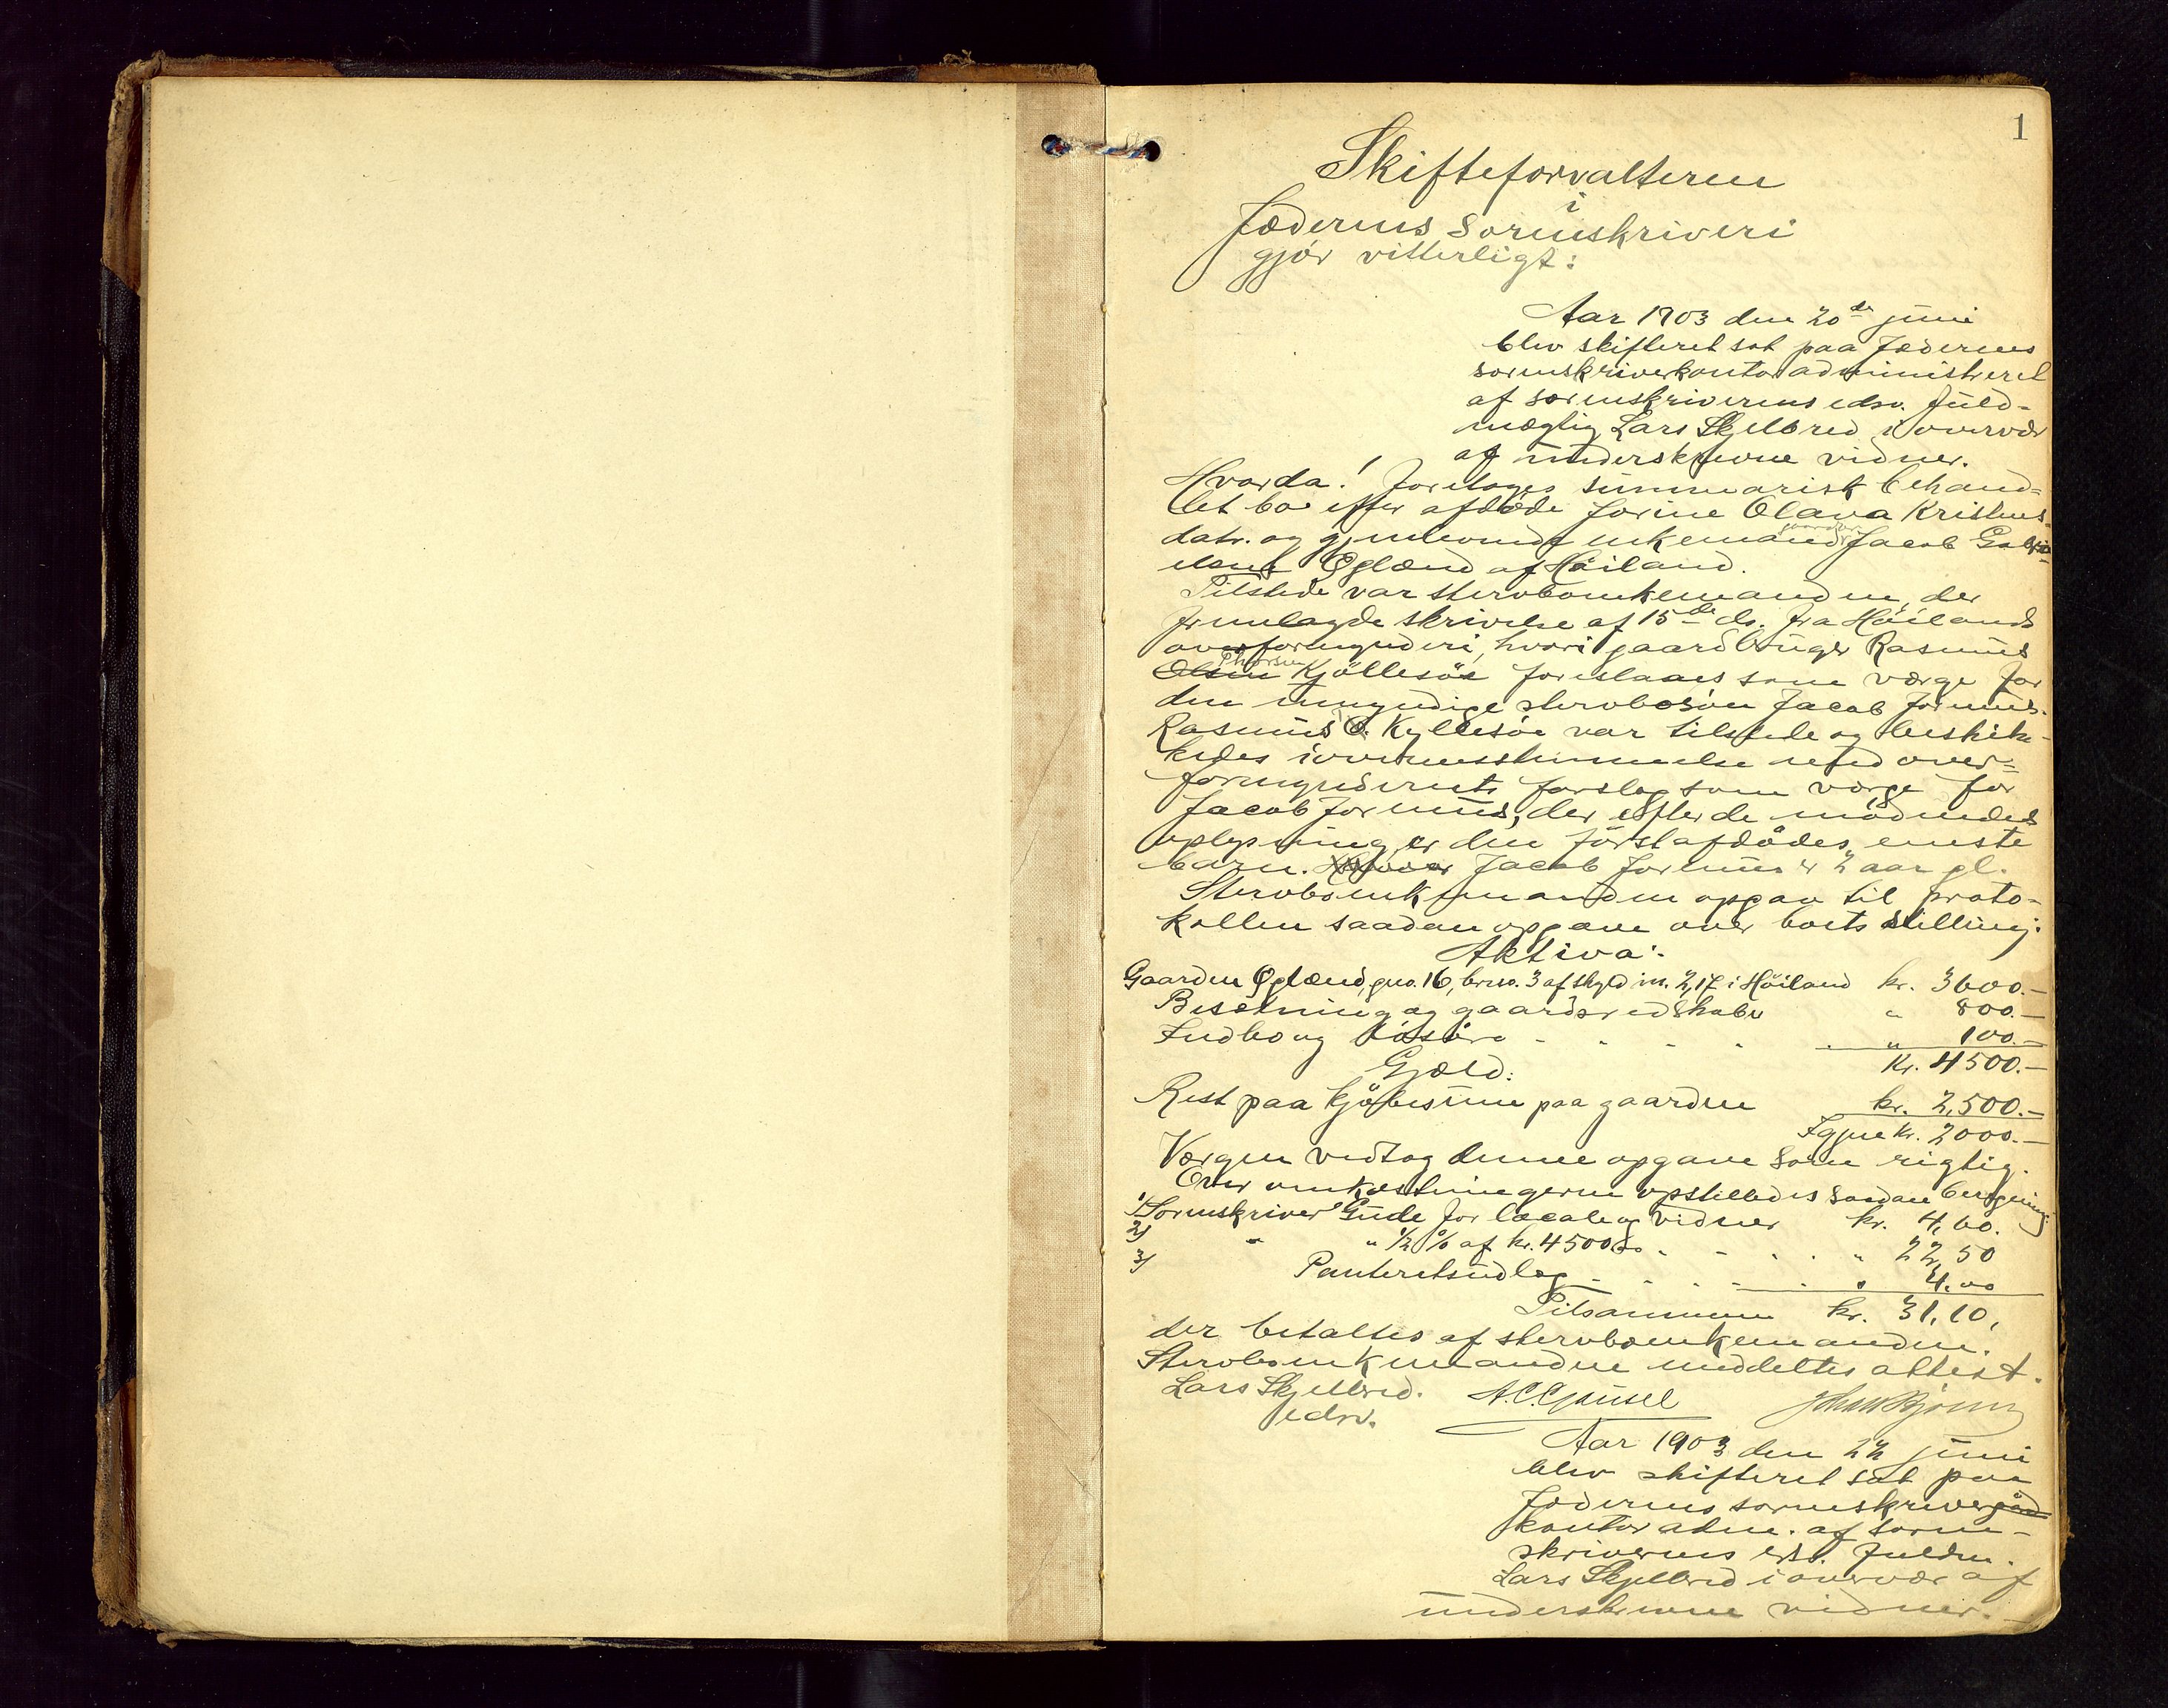 1
Skifteforvalteren
i
Jæderens sorenskriveri
gjør vitterligt:
Aar 1903 den 20de juni
blev skifteret sat paa Jæderens
sorenskriverkontor administreret
af sorenskriverens edsv. fuld-
mægtig Lars Skjelbred i overvær
af underskrevne vidner.
Hvorda! foretoges summarisk behand-
let bo efter afdøde Jorine Olava Kristens-
datr. og gjenlevende enkemand Jacob Gabri-
elsen Øglænd af Høiland.
Tilstede var stervboenkemanden, der
fremlagde skrivelse af 15de ds. fra Høilands
overformynderi, hvori gaardbruger Rasmus
Olsen Thorsen Kjøllesöe foreslaaes som værge for
den umyndige stervbosøn Jacob Jorinus.
Rasmus O. Kyllesöe var tilstede og beskik-
kedes i overensstemmelse med over-
formynderiets forslag som værge for
Jacob Jorinus, der efter de mødendes
oplysning er den förstafdödes eneste
barn. Jacob Jorinus er 2 aar gl.
Stervboenkemanden opgav til proto-
kollen saadan opgave over boets stilling:
Aktiva:
Gaarden Øglænd, gno. 16, brno. 3 af skyld m. 2,17 i Høiland kr. 3600.—
Besætning og gaardsredskaber " 800.—
Indbo og løsøre - - - - - " 100.—
Kr. 4500.—
Gjæld:
Rest paa kjøbesum paa gaarden kr. 2,500.—
Igjen kr. 2000.—
Værgen vedtog denne opgave som rigtig.
Over omkostningerne opstilledes saadan beregning:
1/ Sorenskriver Gude for locale og vidner kr. 4,60.
2/ " " 1/2 % af kr. 4500.00 - - - " 22,50
3/ Panteretsudlæg - - - - - " 4.00
Tilsammen kr. 31,10,
der betaltes af stervboenkemanden.
Stervboenkemanden meddeltes attest.
Lars Skjelbred. A.C. Gausel Johan
edsv.
Aar 1903 den 22 juni
blev skifteret sat paa
Jæderens sorenskrivergaard
kontor adm. af soren-
skriverens eds. fuldm.
Lars Skjelbred i overvær af
underskrevne vidner.